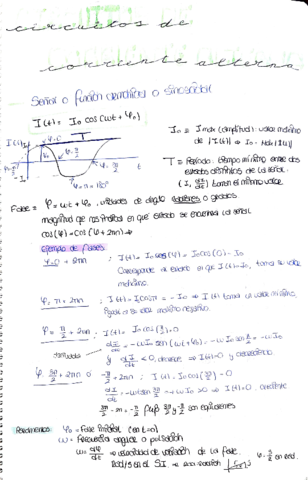 circuitos de
corriente alterna
Señal o función armónica o sinusoidal
I(t) = I₀ cos(ωt + φ₀)
I₀ = I max (amplitud): valor máximo
de |I(t)| ⇒ I₀ = Max |I(t)|
T = Periodo: tiempo mínimo entre dos
estados idénticos de la señal
(I, dI/dt) toman el mismo valor
Fase = φ = ωt + φ₀, unidades de ángulo radianes o grados
magnitud que nos indica en qué estado se encuentra la señal
cos(φ) = cos(φ + 2πn) ⇒
Ejemplo de fases:
φ = 0 + 2πn : I(t) = I₀ cos(φ) = I₀ cos(0) = I₀
Corresponde al estado en que I(t) = I₀, toma su valor
máximo.
φ = π + 2πn : I(t) = I cos π = - I₀ ⇒ I(t) toma su valor mínimo,
φ = π/2 + 2πn : I(t) = I₀ cos(π/2) = 0
dI/dt = -ωI₀ sen(ωt + φ₀) = -ωI₀ sen π/2 = -ωI₀
y dI/dt < 0, ⇒ I(t) = 0 y decreciendo
derivada
φ 3π/2 + 2πn o -π/2 + 2πn : I(t) = I₀ cos(3π/2) = 0
dI/dt = -ωI sen 3π/2 = ωI₀ > 0 ⇒ I(t) = 0, creciente
3π/2 - 2π = -π/2 3π/2 y -π/2 son equivalentes
φ₀ = Fase inicial (en t=0)
ω = Frecuencia angular o pulsación
ω = dφ/dt ⇒ velocidad de variación de la fase.
rad/s en el S.I.